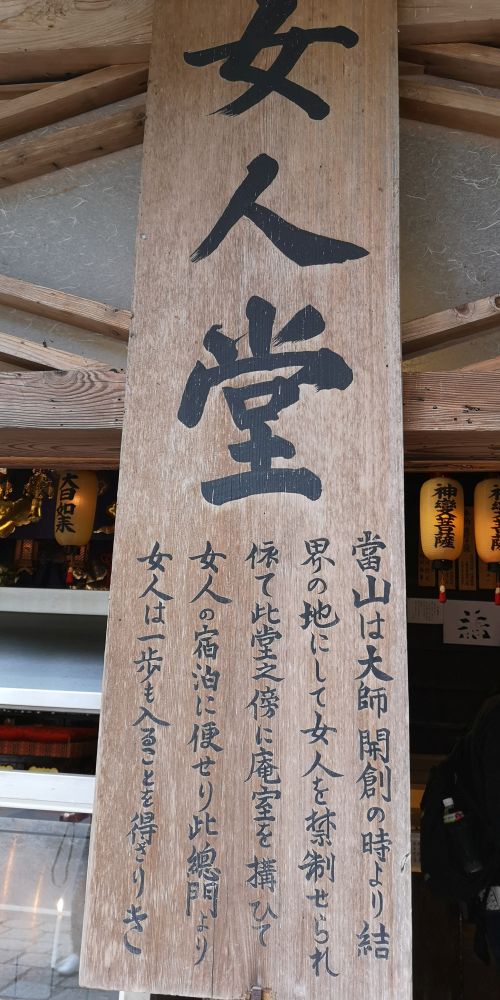 女人堂
當山は大師開創の時より結
界の地にして女人を禁制せられ
依て此堂之傍に庵室を構ひて
女人の宿泊に便せり此總門より
女人は一歩も入ることを得ざりき
大日如来
神變大菩薩